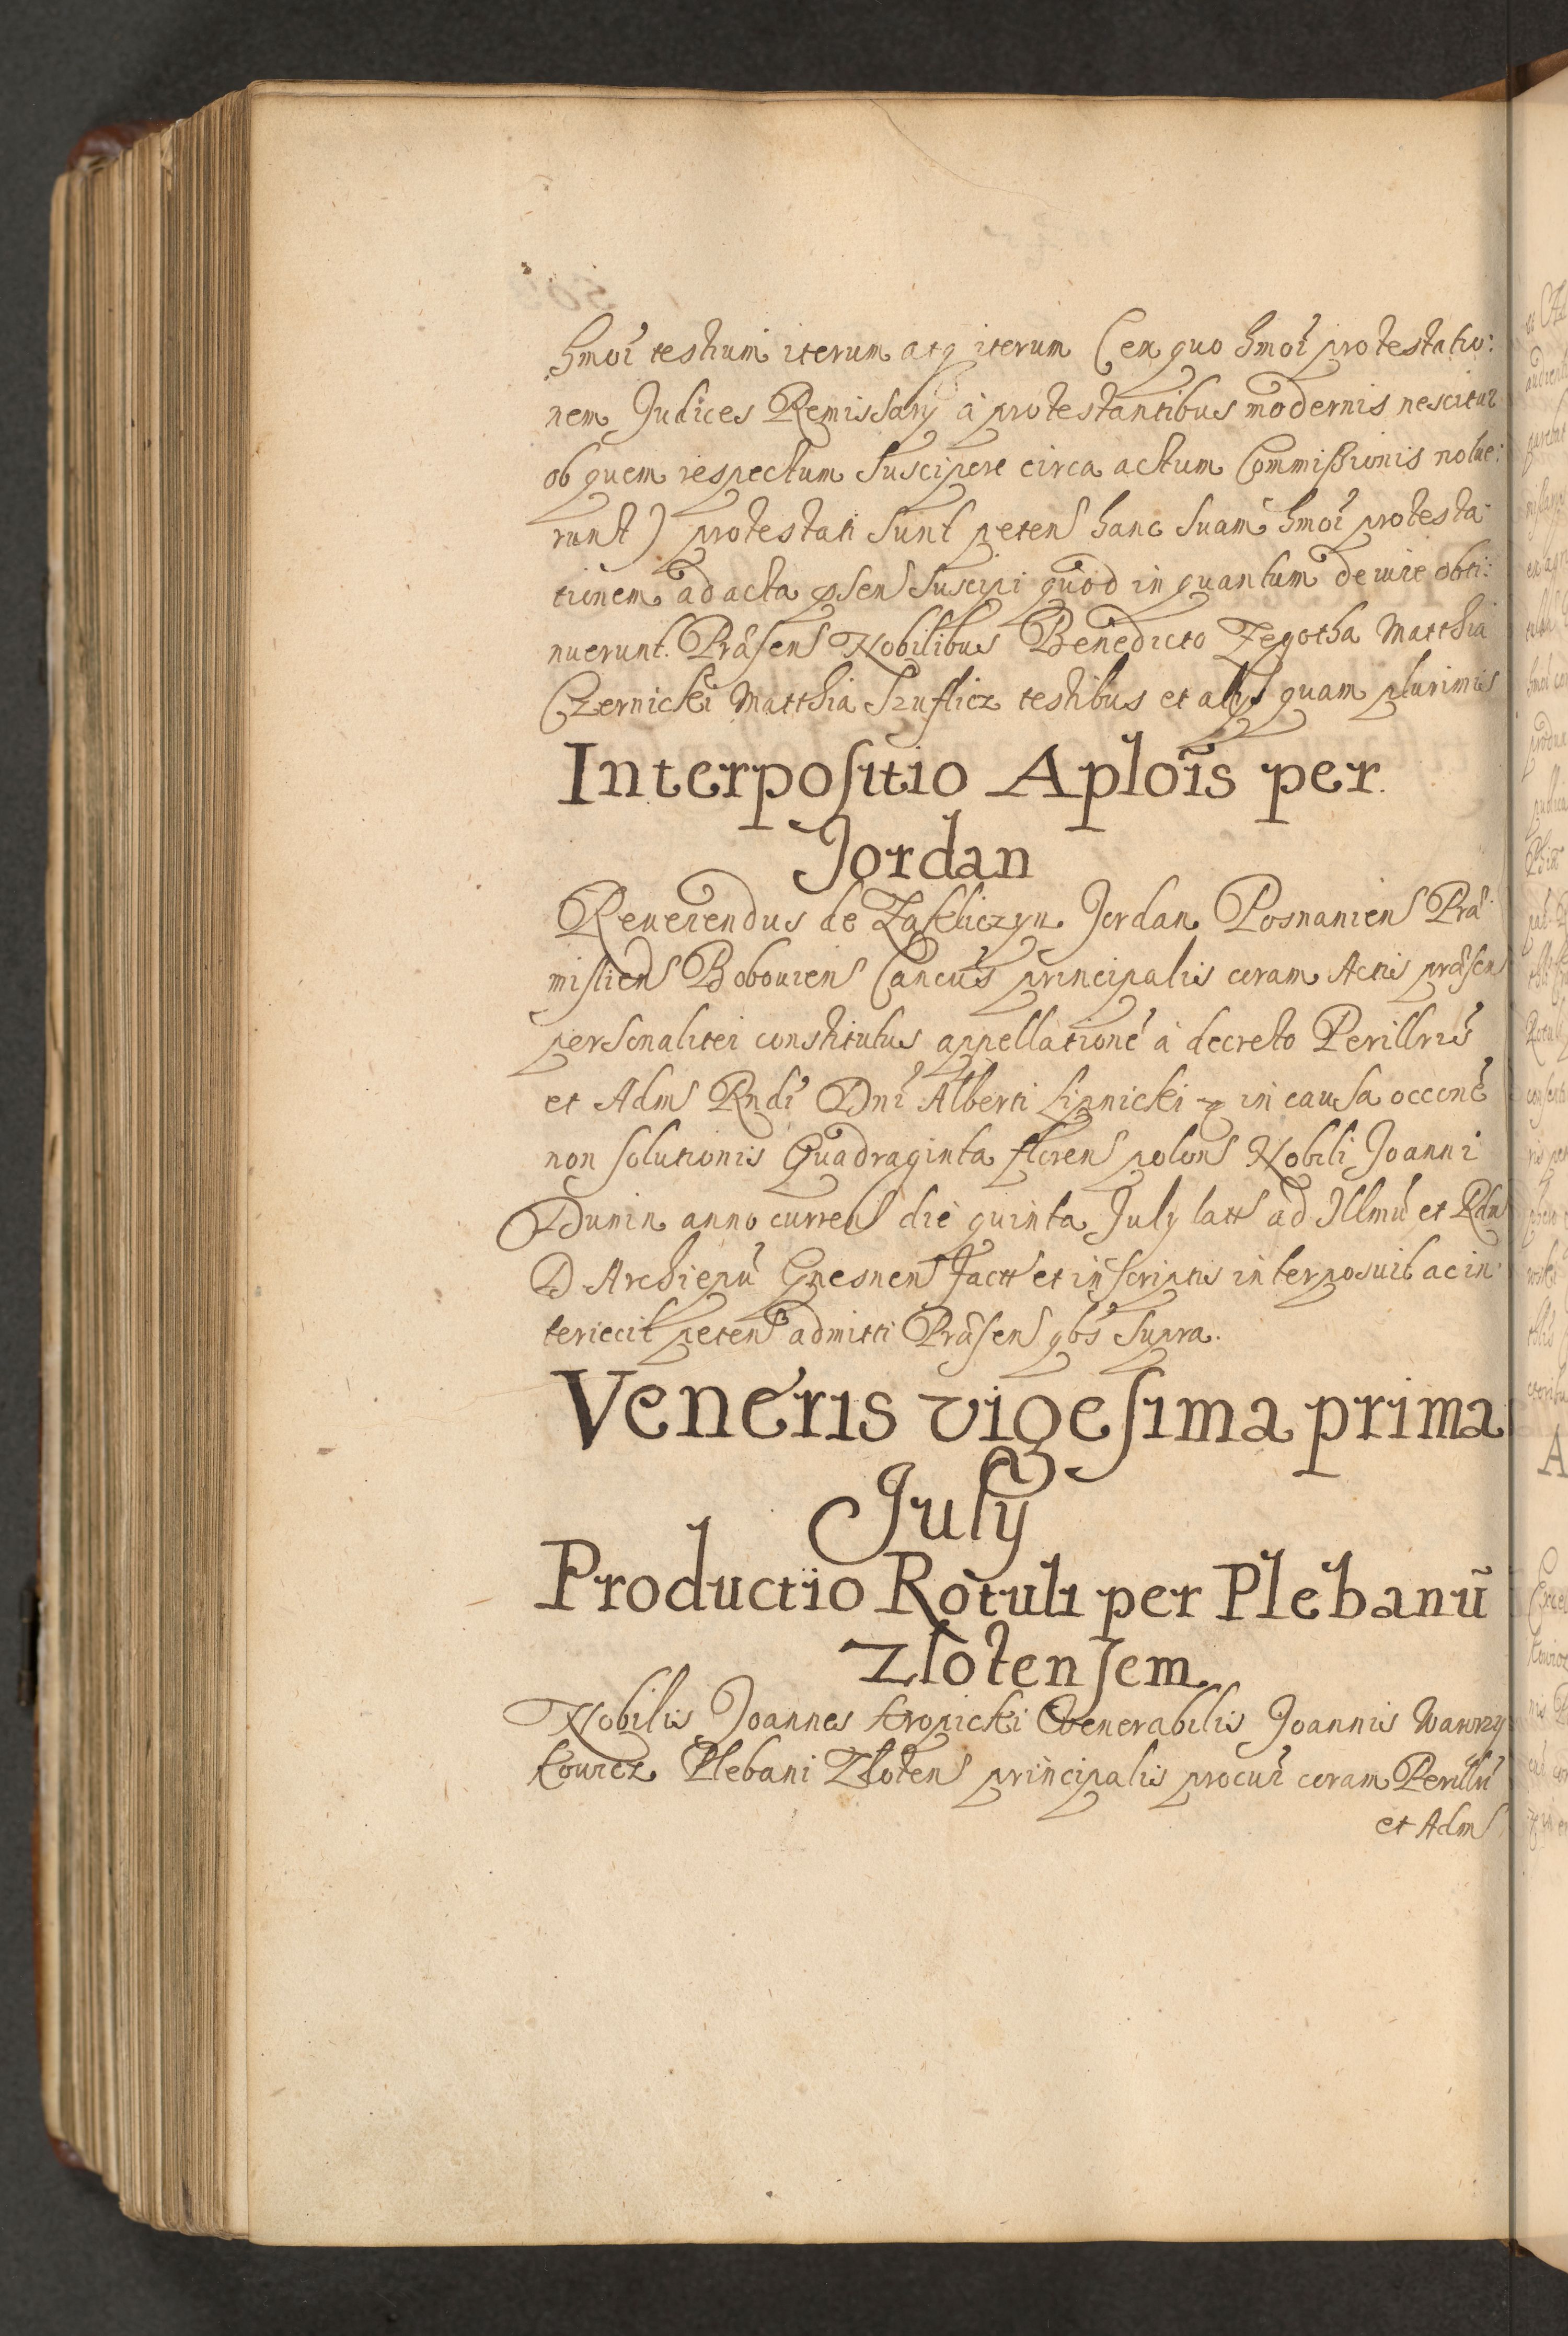 hmoi testium iterum atq iterum (ex quo hmoi protestatio:
nem Judices Remissarij à protestantibus modernis nescitur
ob quem respectum suscipere circa actum Commissionis nolue:
runt) protestati sunt petens hanc suam hmoi protesta:
tionem ad acta psens suscipi quod in quantum de iure obti:
nuerunt. Præsens Nobilibus Benedicto Zegotha Matthia
Czernicki Matthia Szuflicz testibus et alijs quam plurimis
Interpositio Aplōis per
Jordan
Reuerendus de Zakliczyn Jordan Posnaniens Præ:
misliens Bobouiens Cancus principalis coram Actis præsens
personaliter constitutus appellationē à decreto Perillris
et Adm Rndi Dni Alberti Lipnicki in causa occone
non solutionis Quadraginta florens polons Nobili Joanni
Dunin anno currens die quinta July latt ad Illmū et Rdn
D Archiepū Gnesnens factt et in scriptis interposuit ac in:
teriecit petens admitti Præsens qbs supra.
Veneris vigesima prima
July
Productio Rotuli per Plebanū
Zlotensem
Nobilis Joannes Kropicki Venerabilis Joannis Wawrzy
kowicz Plebani Zlotens principalis procur coram Perillri
et Adm